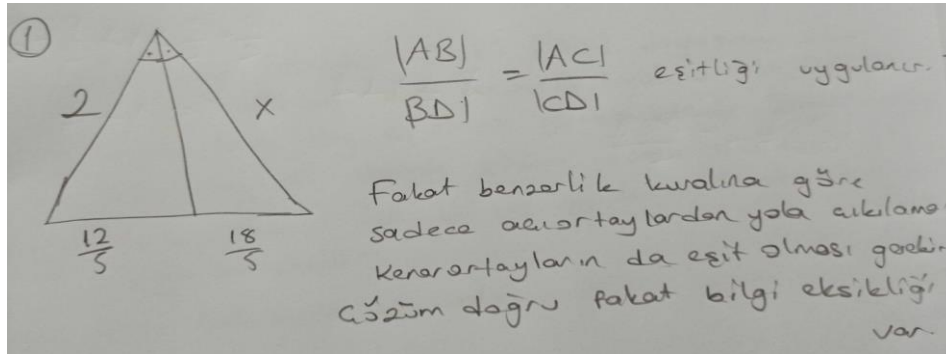 1
2
x
12/5
18/5
|AB|/|BD| = |AC|/|CD| eşitliği uygulanır.
Fakat benzerlik kuralına göre
sadece açıortaylardan yola çıkılamo
Kenarortayların da eşit olması gereki
Çözüm doğru fakat bilgi eksikliği
var